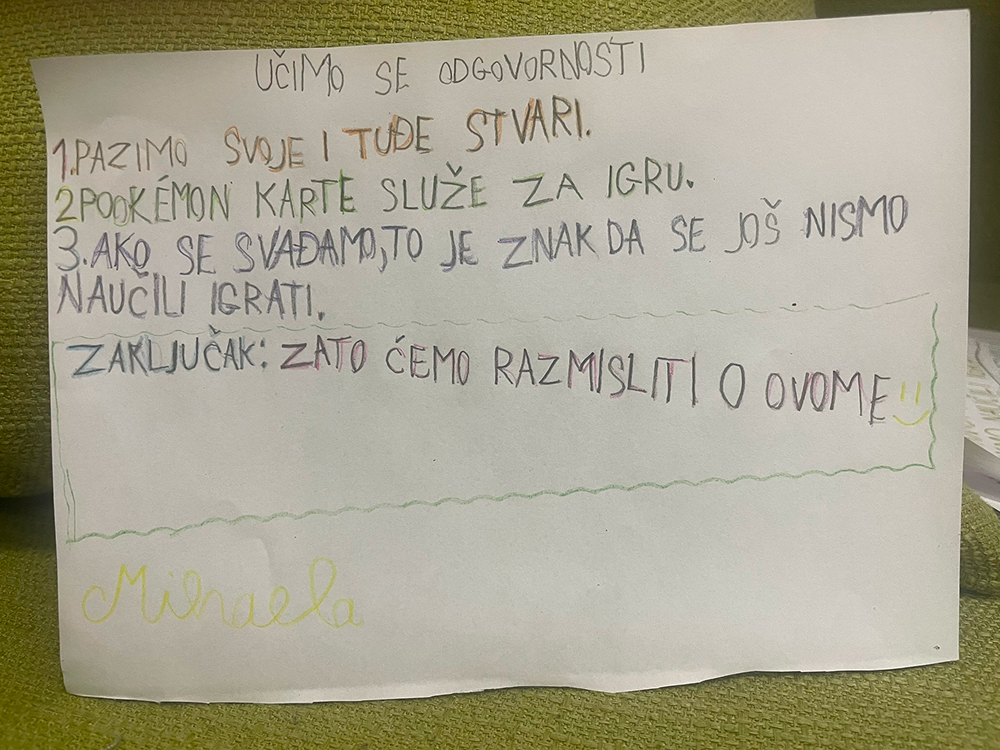 UČIMO SE ODGOVORNOSTI
1.PAZIMO SVOJE I TUĐE STVARI.
2POOKÉMON KARTE SLUŽE ZA IGRU.
3.AKO SE SVAĐAMO,TO JE ZNAK DA SE JOŠ NISMO
NAUČILI IGRATI.
ZAKLJUČAK: ZATO ĆEMO RAZMISLITI O OVOME
Mihaela